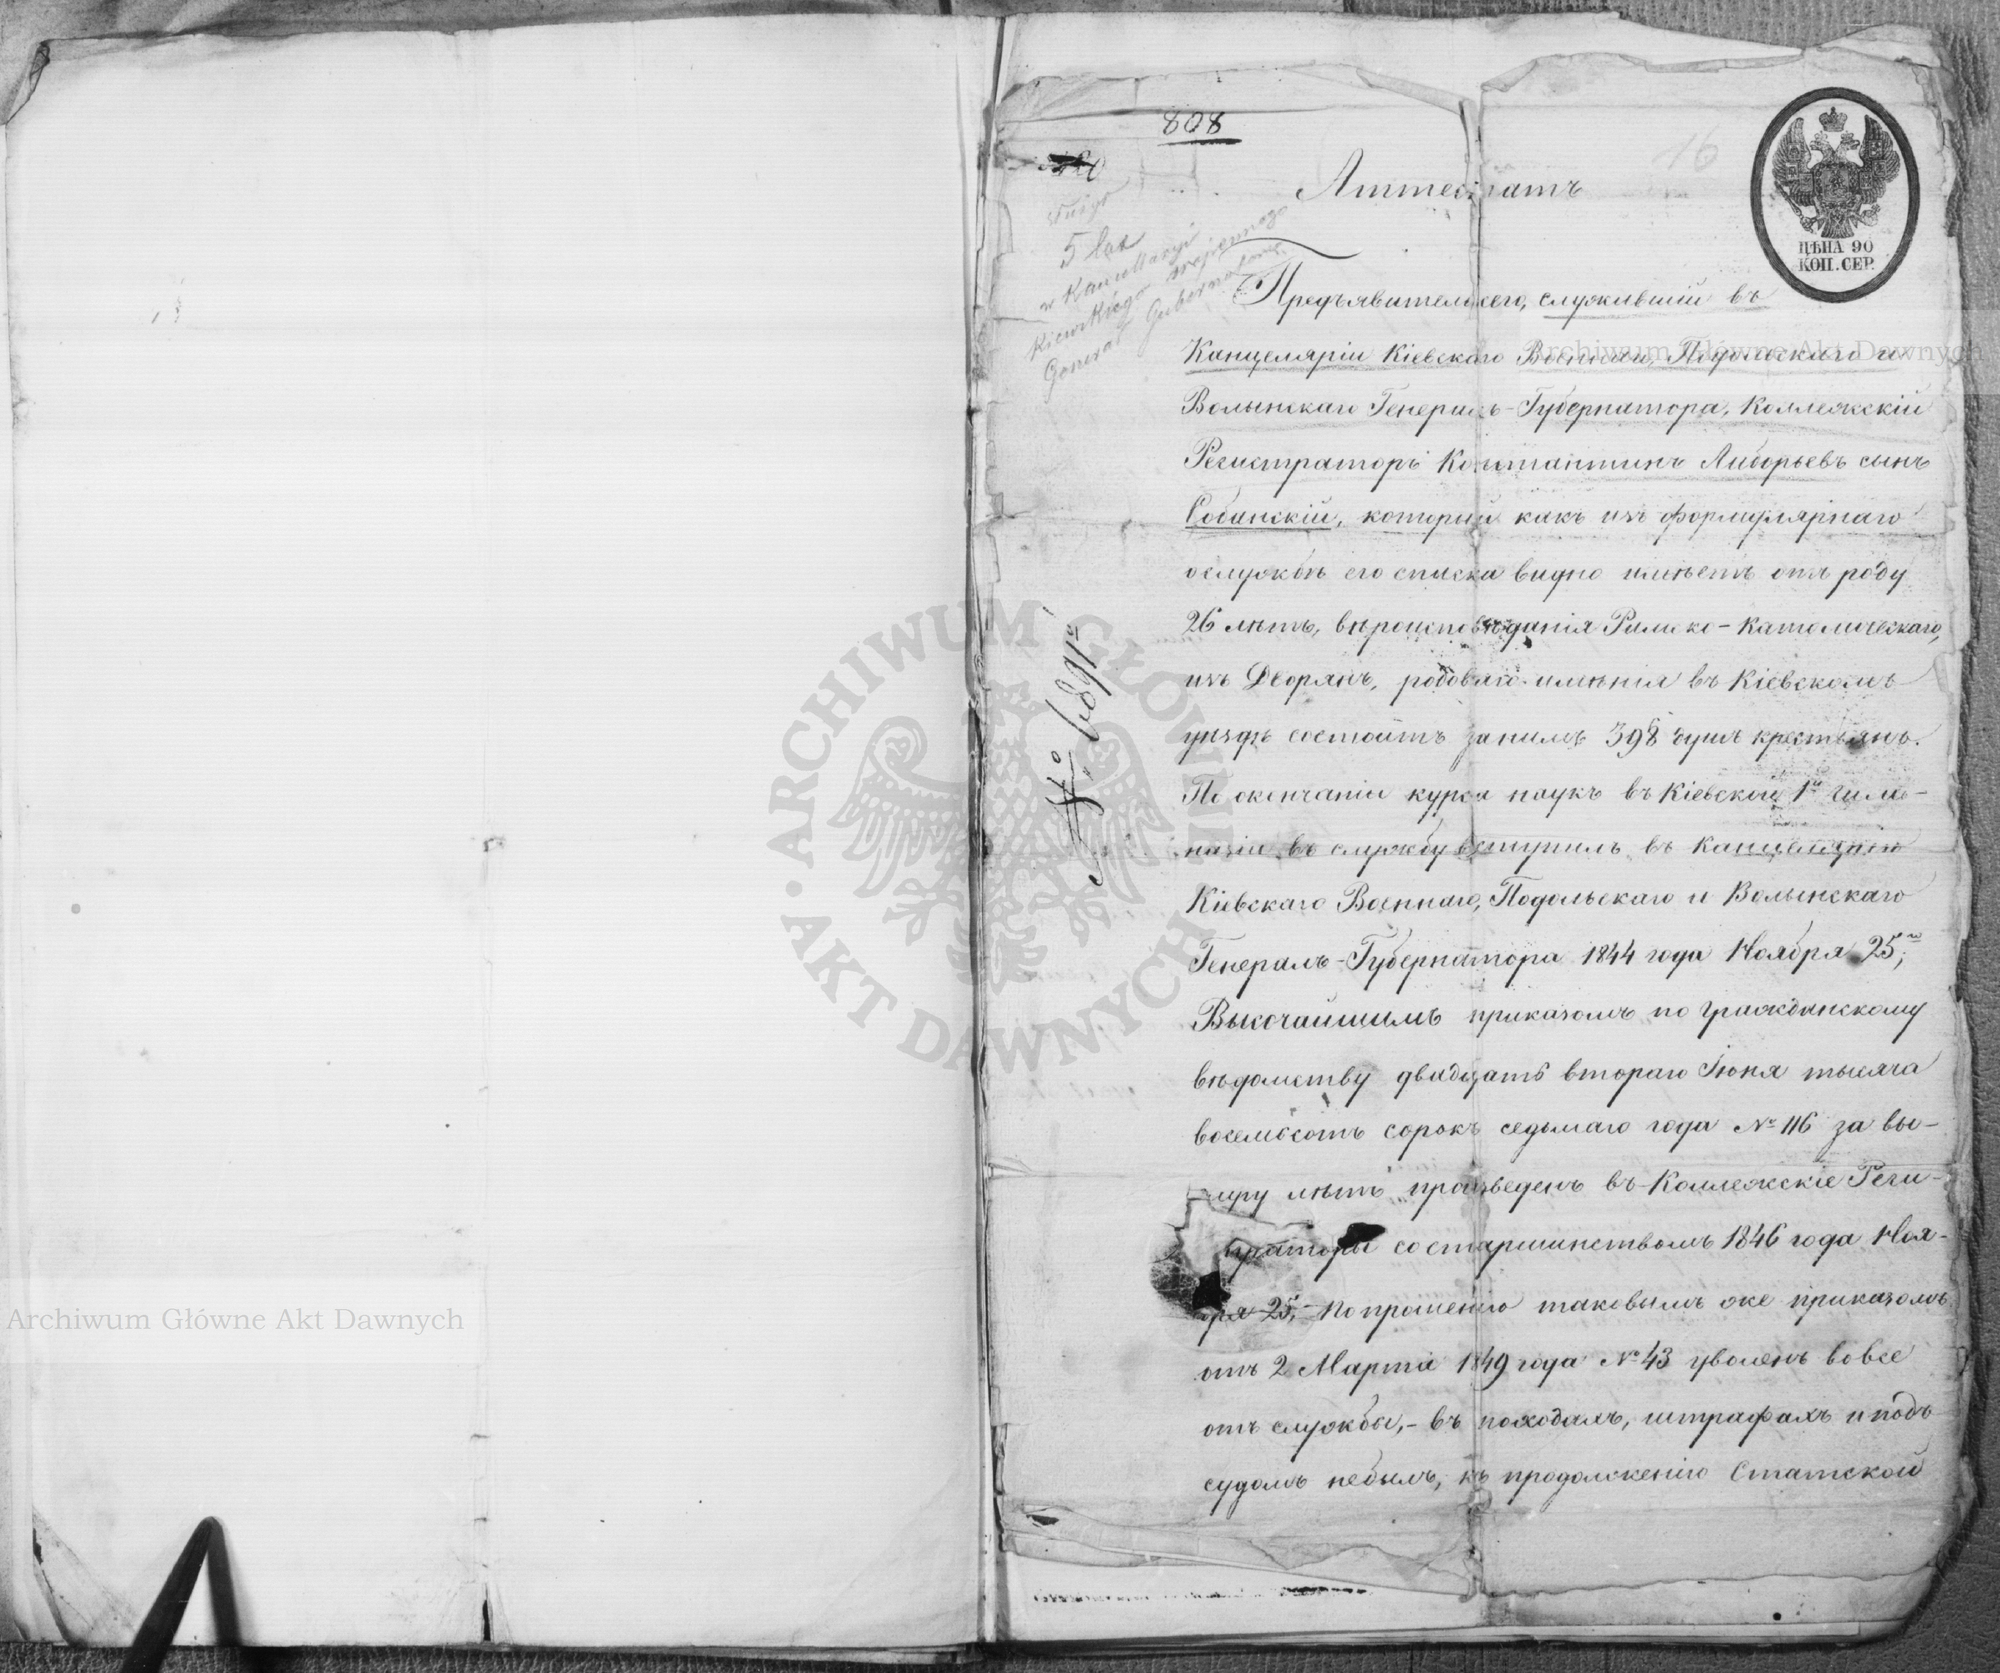 808
16
Аттестатъ
ЦѢНА 90
КОП. СЕР.
5 lat
w Kancellaryi
Kiewskiego wojennego
Generał Gubernatora
Предъявитель сего, служившій въ
Канцеляріи Кіевскаго Военнаго, Подольскаго и
Волынскаго Генералъ-Губернатора, Коллежскій
Регистраторъ Константинъ Либорьевъ сынъ
Собанскій, который какъ изъ формулярнаго
о службѣ его списка видно имѣетъ отъ роду
26 лѣтъ, вѣроисповѣданія Римско-Католическаго,
изъ Дворянъ, родоваго имѣнія въ Кіевскомъ
уѣздѣ состоитъ за нимъ 398 душъ крестьянъ.
По окончаніи курса наукъ въ Кіевской 1й гим-
назіи въ службу вступилъ въ Канцелярію
Кіевскаго Военнаго, Подольскаго и Волынскаго
Генералъ-Губернатора 1844 года Ноября 25го,
Высочайшимъ приказомъ по гражданскому
вѣдомству двадцать втораго Іюня тысяча
восемьсотъ сорокъ седьмаго года № 116 за вы-
слугу лѣтъ произведенъ въ Коллежскіе Реги-
страторы со старшинствомъ 1846 года Ноя-
бря 25, по прошенію таковымъ же приказомъ
отъ 2 Марта 1849 года № 43 уволенъ вовсе
отъ службы,- въ походахъ, штрафахъ и подъ
судомъ небылъ, къ продолженію Статской
ARCHIWUM GŁÓWNE AKT DAWNYCH
Archiwum Główne Akt Dawnych
Archiwum Główne Akt Dawnych